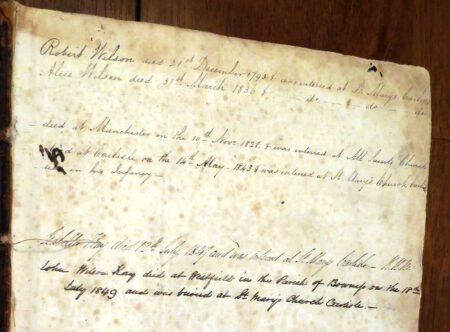 Robert Wilson died 21st December 1793 & was interred at St. Mary's Carlisle
Alice Wilson died 31st March 1836 & — do — do — do
— died at Manchester on the 10th Nov. 1838 & was interred at All Saints Church
died at Carlisle on the 14th May 1843 & was interred at St Mary's Church Carlisle
in his Infancy —
Kay died 12th July 1847 and was interred at St Mary's Carlisle
John Wilson Kay died at Westfield in the Parish of Bowness on the 18th
July 1849 and was buried at St Mary's Church Carlisle. —